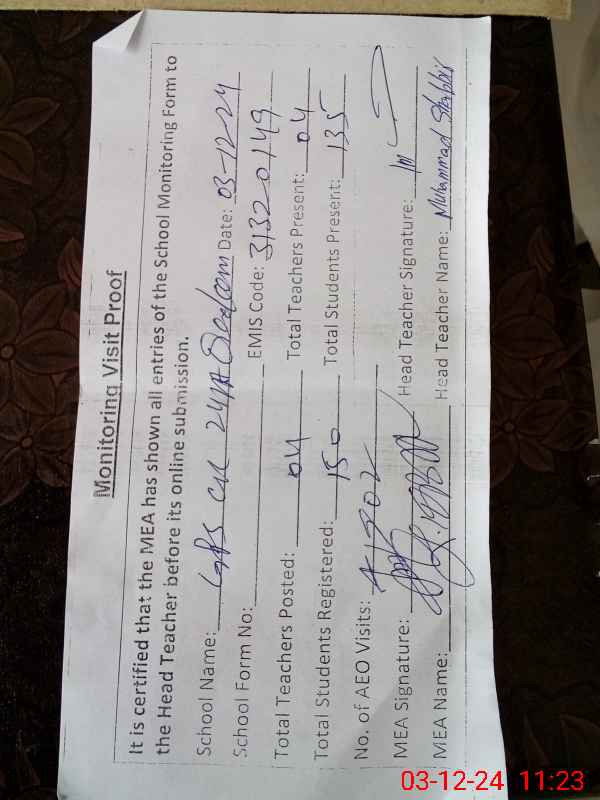 Monitoring Visit Proof
It is certified that the MEA has shown all entries of the School Monitoring Form to
the Head Teacher before its online submission.
School Name: GPS CH 241A Date: 03-12-24
School Form No: EMIS Code: 31320149
Total Teachers Posted: 04 Total Teachers Present: 04
Total Students Registered: 150 Total Students Present: 135
No. of AEO Visits:
MEA Signature: Head Teacher Signature:
MEA Name: Head Teacher Name: Muhammad Shabbir
03-12-24 11:23